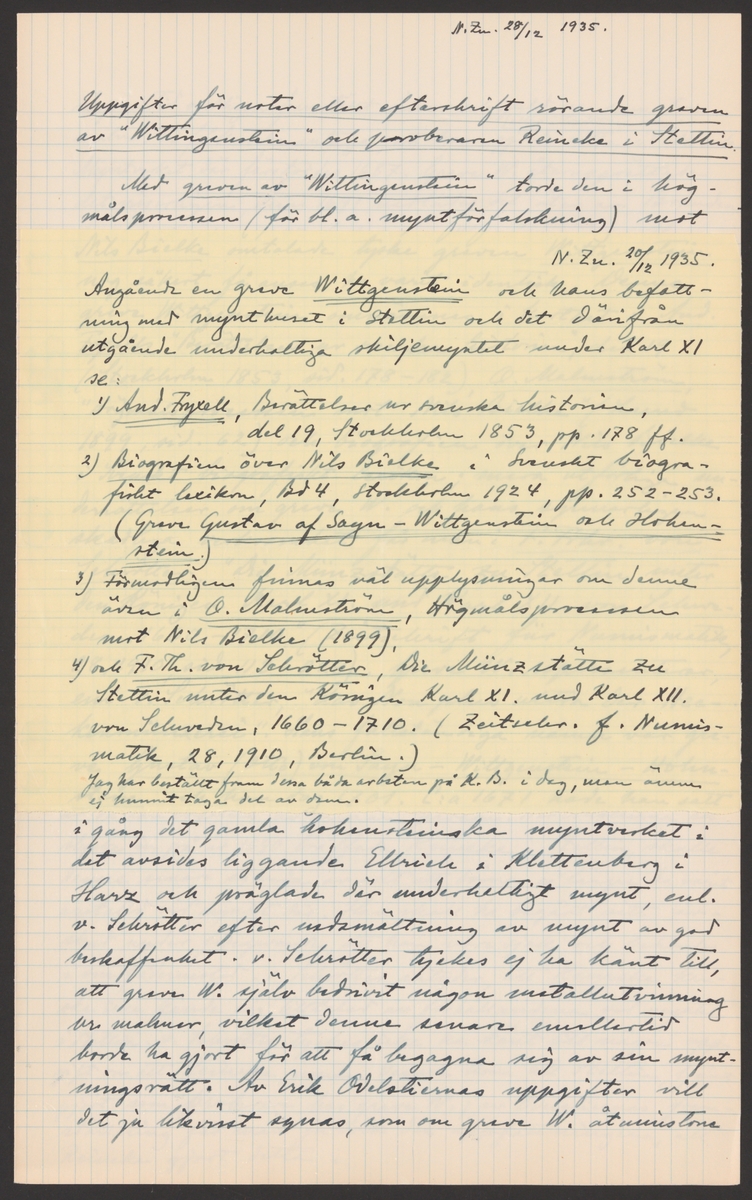 N. Zn. 28/12 1935.
Uppgifter för noter eller efterskrift rörande greven
av "Wittingenstein" och proberaren Reincke i Stettin.
Med greven av "Wittingenstein" torde den i hög-
målsprocessen (för bl. a. myntförfalskning) mot
N. Zn. 20/12 1935.
Angående en greve Wittgenstein och hans befatt-
ning med mynthuset i Stettin och det därifrån
utgående underhaltiga skiljemyntet under Karl XI
se:
1) And. Fryxell, Berättelser ur svenska historien,
del 19, Stockholm 1853, pp. 178 ff.
2) Biografien över Nils Bielke i Svenskt biogra-
fiskt lexikon, Bd 4, Stockholm 1924, pp. 252-253.
(Greve Gustav af Sayn-Wittgenstein och Hohen-
stein.)
3) Förmodligen finnas väl upplysningar om denne
även i O. Malmström, Högmålsprocessen
mot Nils Bielke (1899),
4) och F. Th. von Schrötter, Die Münzstätte zu
Stettin unter den Königen Karl XI. und Karl XII.
von Schweden, 1660-1710. (Zeitschr. f. Numis-
matik, 28, 1910, Berlin.)
Jag har beställt fram dessa båda arbeten på K. B. i dag, men ännu
ej hunnit taga del av dem.
i gång det gamla hohensteinska myntverket i
det avsides liggande Ellrich i Klettenberg i
Harz och präglade där underhaltigt mynt, enl.
v. Schrötter efter nedsmältning av mynt av god
beskaffenhet. v. Schrötter tyckes ej ha känt till,
att greve W. själv bedrivit någon metallutvinning
ur malmer, vilket denne senare emellertid
borde ha gjort för att få begagna sig av sin mynt-
ningsrätt. Av Erik Odelstiernas uppgifter vill
det ju likvisst synas, som om greve W. åtminstone